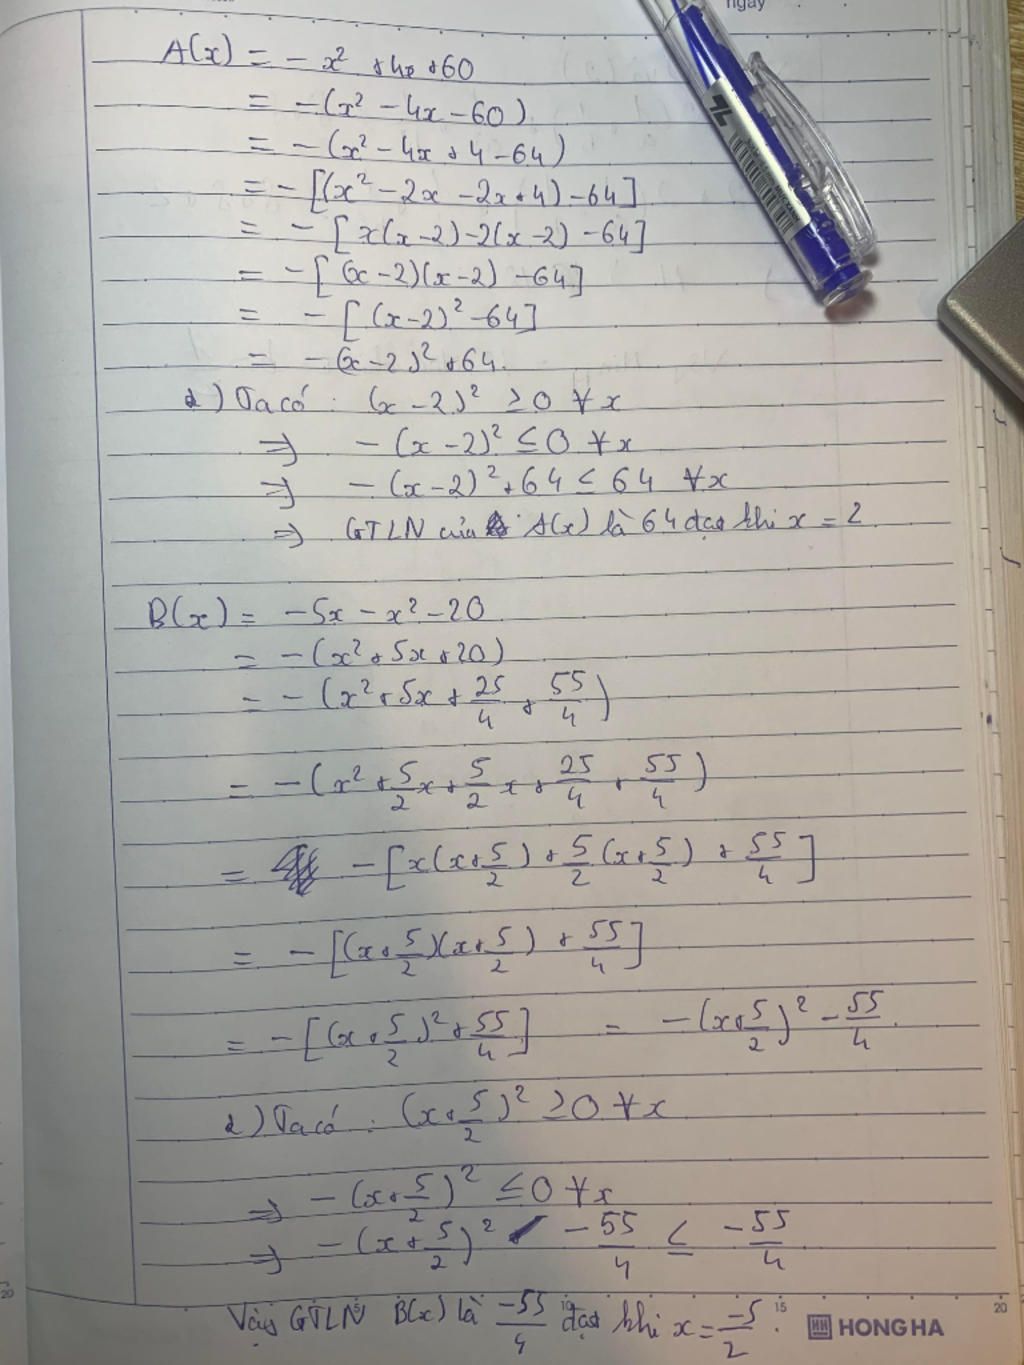 ngày
A(x) = - x² + 4x + 60
= - (x² - 4x - 60)
= - (x² - 4x + 4 - 64)
= - [(x² - 2x - 2x + 4) - 64]
= - [x(x - 2) - 2(x - 2) - 64]
= - [(x - 2)(x - 2) - 64]
= - [(x - 2)² - 64]
= - (x - 2)² + 64.
2) Ta có : (x - 2)² ≥ 0 ∀x
⇒ - (x - 2)² ≤ 0 ∀x
⇒ - (x - 2)² + 64 ≤ 64 ∀x
⇒ GTLN của A(x) là 64 đạt khi x = 2
B(x) = - 5x - x² - 20
= - (x² + 5x + 20)
= - (x² + 5x + 25/4 + 55/4)
= - (x² + 5/2 x + 5/2 x + 25/4 + 55/4)
= - [x(x + 5/2) + 5/2 (x + 5/2) + 55/4]
= - [(x + 5/2)(x + 5/2) + 55/4]
= - [(x + 5/2)² + 55/4] = - (x + 5/2)² - 55/4.
2) Ta có : (x + 5/2)² ≥ 0 ∀x
⇒ - (x + 5/2)² ≤ 0 ∀x
⇒ - (x + 5/2)² - 55/4 ≤ - 55/4
Vậy GTLN B(x) là -55/4 đạt khi x = -5/2.
20 5 10 15 20
HH HONG HA